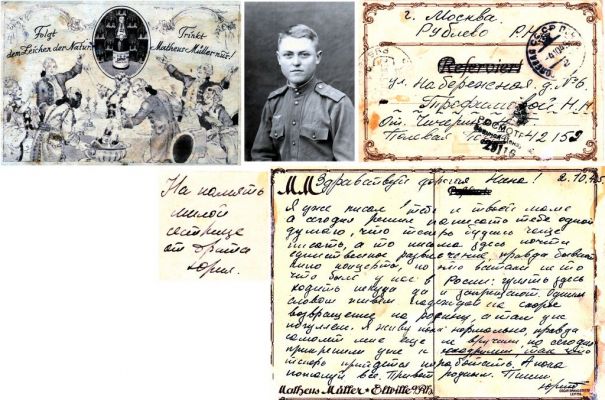 Folgt
dem Zeichen der Natur:
Trinkt
Matheus Müller nur!
г. Москва.
Рублево
Reserviert
ул. Набережная, д. №6.
Трофимовой Н.Н.
От. Чичерин
Полевая 42152
На память
милой
сестрице
от брата
Юрия.
ММ Здравствуй дорогая Нина! 2.10.45
Reserviert
Я уже писал тебе и твоей маме
а сегодня решил написать тебе одной
думаю, что теперь будешь чаще
писать, а то письма здесь почти
единственное развлечение, правда бывают
кино концерты, но это встали не то
что были у нас в России: гулять здесь
ходить некуда да и запрещают. Одним
словом живем надеждой на скорое
возвращение на родину, а там уже
погуляем. Я живу пока нормально, правда
самолет мне еще не вручили, но сегодня
прикрепили уже к эскадрилье так что
теперь придется поработать. А пока
пожалуй все. Привет родным. Пиши
Юрий
Matheus Müller • Eltville a/Rh.